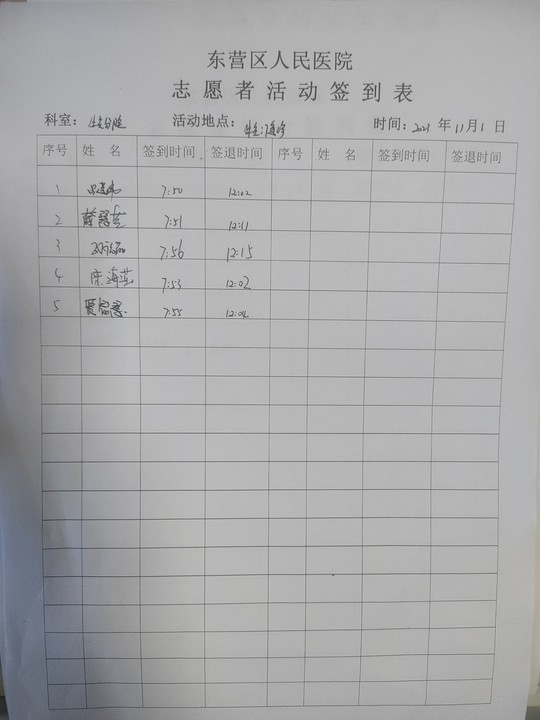 东营区人民医院
志愿者活动签到表
科室： 活动地点： 时间：2023年11月1日
序号 姓名 签到时间 签退时间 序号 姓名 签到时间 签退时间
1 7:50 12:02
2 7:51 12:11
3 7:56 12:15
4 陈海燕 7:53 12:02
5 7:55 12:04